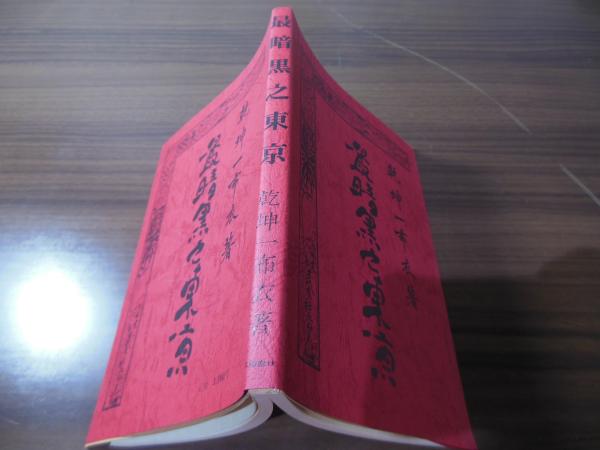 最暗黒之東京　乾坤一布衣著
乾坤一布衣著
最暗黒之東京
乾坤一布衣著
最暗黒之東京